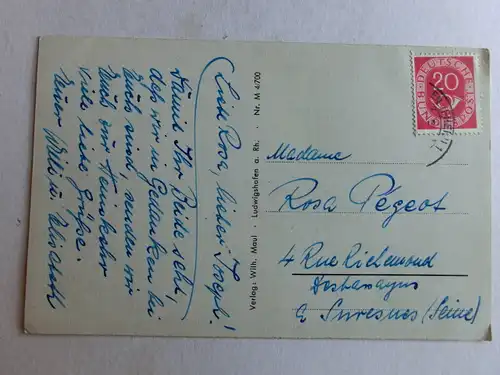 Liebe Rosa, lieber Joseph!
Damit Ihr Beide seht,
daß wir in Gedanken bei
Euch sind, senden wir
Euch zur Heimkehr
viele liebe Grüße.
Eure Willi u. Elisabeth
Verlag: Wilh. Maul · Ludwigshafen a. Rh. · Nr. M 4/700
DEUTSCHE BUNDESPOST
20
Madame
Rosa Pegeot
4 Rue Richemond
à Suresnes (Seine)